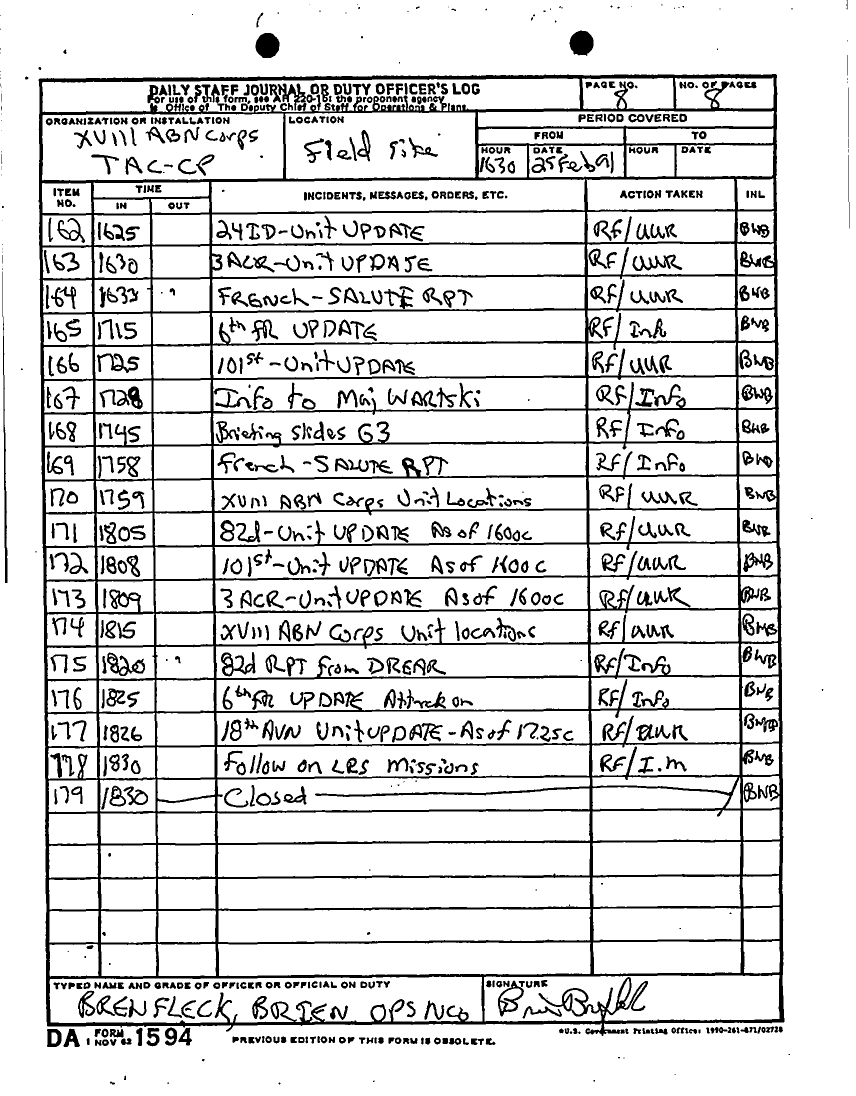 DAILY STAFF JOURNAL OR DUTY OFFICER'S LOG
For use of this form, see AR 220-15; the proponent agency
is Office of The Deputy Chief of Staff for Operations & Plans.
PAGE NO. 8
NO. OF PAGES 8
ORGANIZATION OR INSTALLATION
XVIII ABN Corps
TAC-CP
LOCATION
Field Site
PERIOD COVERED
FROM TO
HOUR DATE HOUR DATE
1630 25 Feb 91
ITEM NO. TIME IN OUT INCIDENTS, MESSAGES, ORDERS, ETC. ACTION TAKEN INL
162 1625 24ID-Unit UPDATE RF/UUR BWB
163 1630 3ACR-Unit UPDATE RF/UUR BWB
164 1633 FRENCH-SALUTE RPT RF/UUR BWB
165 1715 6th FR UPDATE RF/ BWB
166 1725 101st-Unit UPDATE RF/UUR BWB
167 1728 Info to Maj WARTSKI RF/Info BWB
168 1745 Briefing slides G3 RF/Info BWB
169 1758 French-SALUTE RPT RF/Info BWB
170 1759 XVIII ABN Corps Unit Locations RF/UUR BWB
171 1805 82d-Unit UPDATE As of 1600c RF/UUR BWB
172 1808 101st-Unit UPDATE As of 1600c RF/UUR BWB
173 1809 3ACR-Unit UPDATE As of 1600c RF/UUR BWB
174 1815 XVIII ABN Corps Unit locations RF/UUR BWB
175 1820 82d RPT from DREAR RF/Info BWB
176 1825 6th FR UPDATE Attack on RF/Info BWB
177 1826 18th AVN Unit UPDATE-As of 1725c RF/UUR BWB
178 1830 Follow on LRS Missions RF/I.m BWB
179 1830 Closed BWB
TYPED NAME AND GRADE OF OFFICER OR OFFICIAL ON DUTY
BRENFLECK, BRIEN OPS NCO
SIGNATURE
DA FORM 1 NOV 62 1594
PREVIOUS EDITION OF THIS FORM IS OBSOLETE.
*U.S. Government Printing Office: 1990-261-871/02728